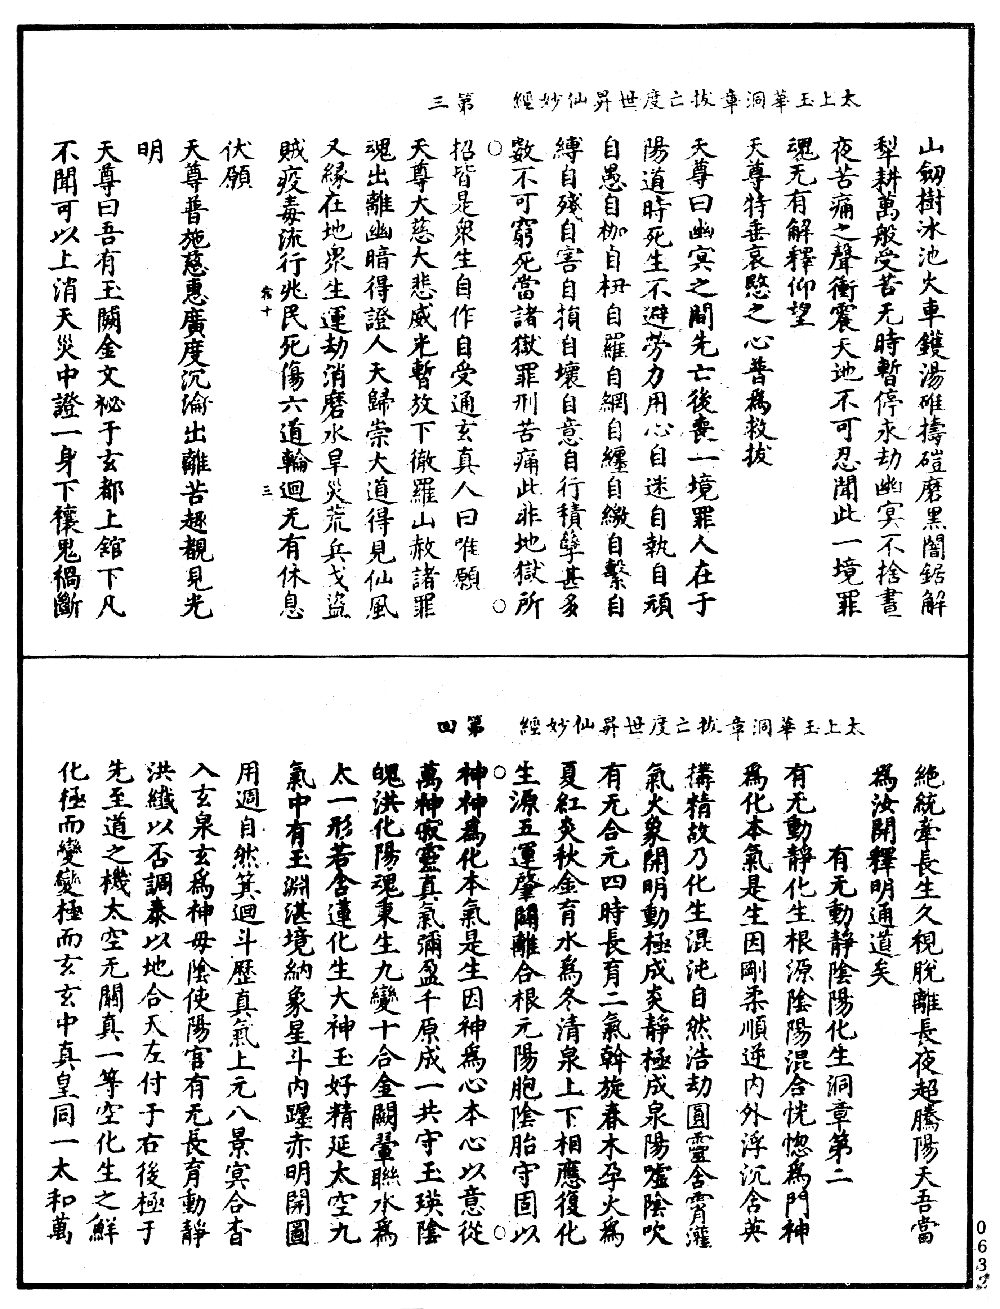 太上玉華洞章拔亡度世昇仙妙經　第三
山劒樹氷池火車鑊湯碓擣磑磨黑闇鋸解
犁耕萬般受苦无時暫停永劫幽冥不捨晝
夜苦痛之聲衝震天地不可忍聞此一境罪
魂无有解釋仰望
天尊特垂哀愍之心普為救拔
天尊曰幽冥之間先亡後喪一境罪人在于
陽道時死生不避勞力用心自迷自執自頑
自愚自枷自杻自羅自網自纏自繳自繫自
縛自殘自害自損自壞自意自行積孽甚多
數不可窮死當諸獄罪刑苦痛此非地獄所
招皆是衆生自作自受通玄真人曰唯願
天尊大慈大悲威光暫放下徹羅山赦諸罪
魂出離幽暗得證人天歸崇大道得見仙風
又緣在地衆生運劫消磨水旱災荒兵戈盜
賊疫毒流行兆民死傷六道輪迴无有休息
十　三
伏願
天尊普施慈惠廣度沉淪出離苦趣覩見光
明
天尊曰吾有玉闕金文祕于玄都上舘下凡
不聞可以上消天災中證一身下禳鬼禍斷
太上玉華洞章拔亡度世昇仙妙經　第四
絶統牽長生久視脫離長夜超騰陽天吾當
為汝開釋明通道矣
有无動靜陰陽化生洞章第二
有无動靜化生根源陰陽混合恍惚為門神
為化本氣是生因剛柔順逆內外浮沉含英
搆精故乃化生混沌自然浩劫圓靈含霄灌
氣火象開明動極成炎靜極成泉陽噓陰吹
有无合元四時長育二氣斡旋春木孕火為
夏紅炎秋金育水為冬清泉上下相應復化
生源五運肇闢離合根元陽胞陰胎守固以
神神為化本氣是生因神為心本心以意從
萬神寂靈真氣彌盈千原成一共守玉瑛陰
魄洪化陽魂秉生九變十合金闕輦聯水為
太一形若含蓮化生大神玉好精延太空九
氣中有玉淵湛境納象星斗內躔赤明開圖
用週自然箕迴斗歷真氣上元八景冥合杳
入玄泉玄為神母陰使陽官有无長育動靜
洪纖以否調泰以地合天左付于右後極于
先至道之機太空无關真一等空化生之鮮
化極而變變極而玄玄中真皇同一太和萬
0632